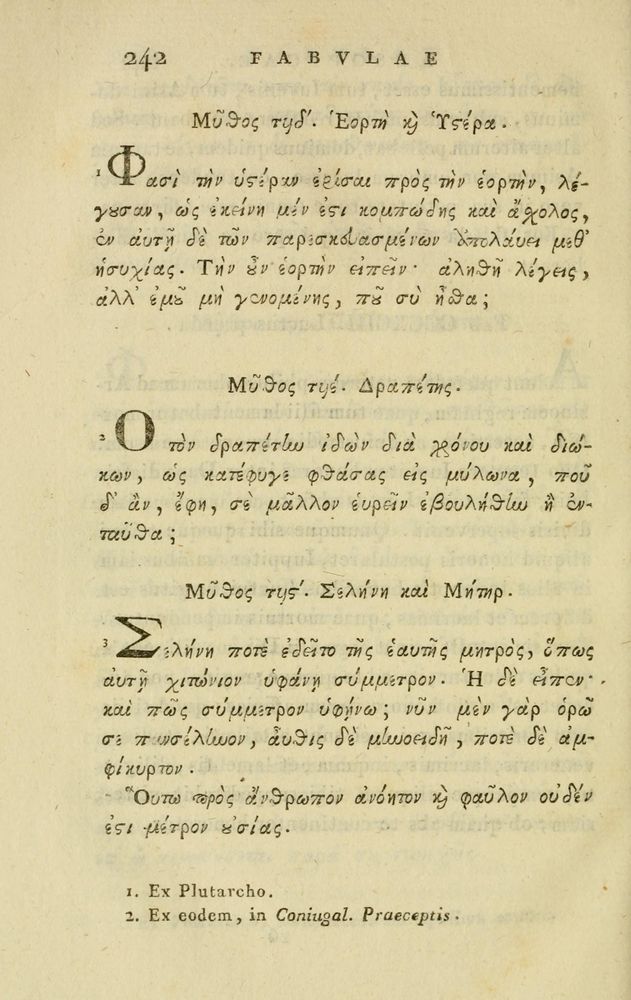 242 FABVLAE
Μῦθος τιδʹ. Ἑορτὴ κỳ Ὑϛέρα.
¹ Φασὶ τὴν ὑϛέραν ἐρίσαι πρὸς τὴν ἑορτὴν, λέ-
γȣσαν, ὡς ἐκείνη μέν ἐϛι κομπώδης καὶ ἄχολος,
ἐν αὐτῇ δὲ τῶν παρεσκευασμένων ἀπολάυει μεθ'
ἡσυχίας. Τὴν ȣ̓ν ἑορτὴν εἰπεῖν· ἀληθῆ λέγεις,
ἀλλ' ἐμȣ͂ μὴ γενομένης, πȣ͂ σὺ ἦθα;
Μῦθος τιέ. Δραπέτης.
² Ὁ τὸν δραπέτην ἰδὼν διὰ χρόνου καὶ διώ-
κων, ὡς κατέφυγε φθάσας εἰς μύλωνα, ποῦ
δ' ἂν, ἔφη, σὲ μᾶλλον ἑυρεῖν ἐβουλήθην ἢ ἐν-
ταῦθα;
Μῦθος τιϛʹ. Σελήνη καὶ Μήτηρ.
³ Σελήνη ποτὲ ἐδεῖτο τῆς ἑαυτῆς μητρὸς, ὅπως
ἀυτῇ χιτώνιον ὑφάνῃ σύμμετρον. Ἡ δὲ εἶπεν·
καὶ πῶς σύμμετρον ὑφήνω; νῦν μὲν γὰρ ὁρῶ
σε πανσέληνον, ἆυθις δὲ μηνοειδῆ, ποτὲ δὲ ἀμ-
φίκυρτον.
Ὅυτω πρὸς ἄνθρωπον ἀνόητον κỳ φαῦλον οὐδέν
ἐϛι μέτρον ȣσίας.
1. Ex Plutarcho.
2. Ex eodem, in Coniugal. Praeceptis.